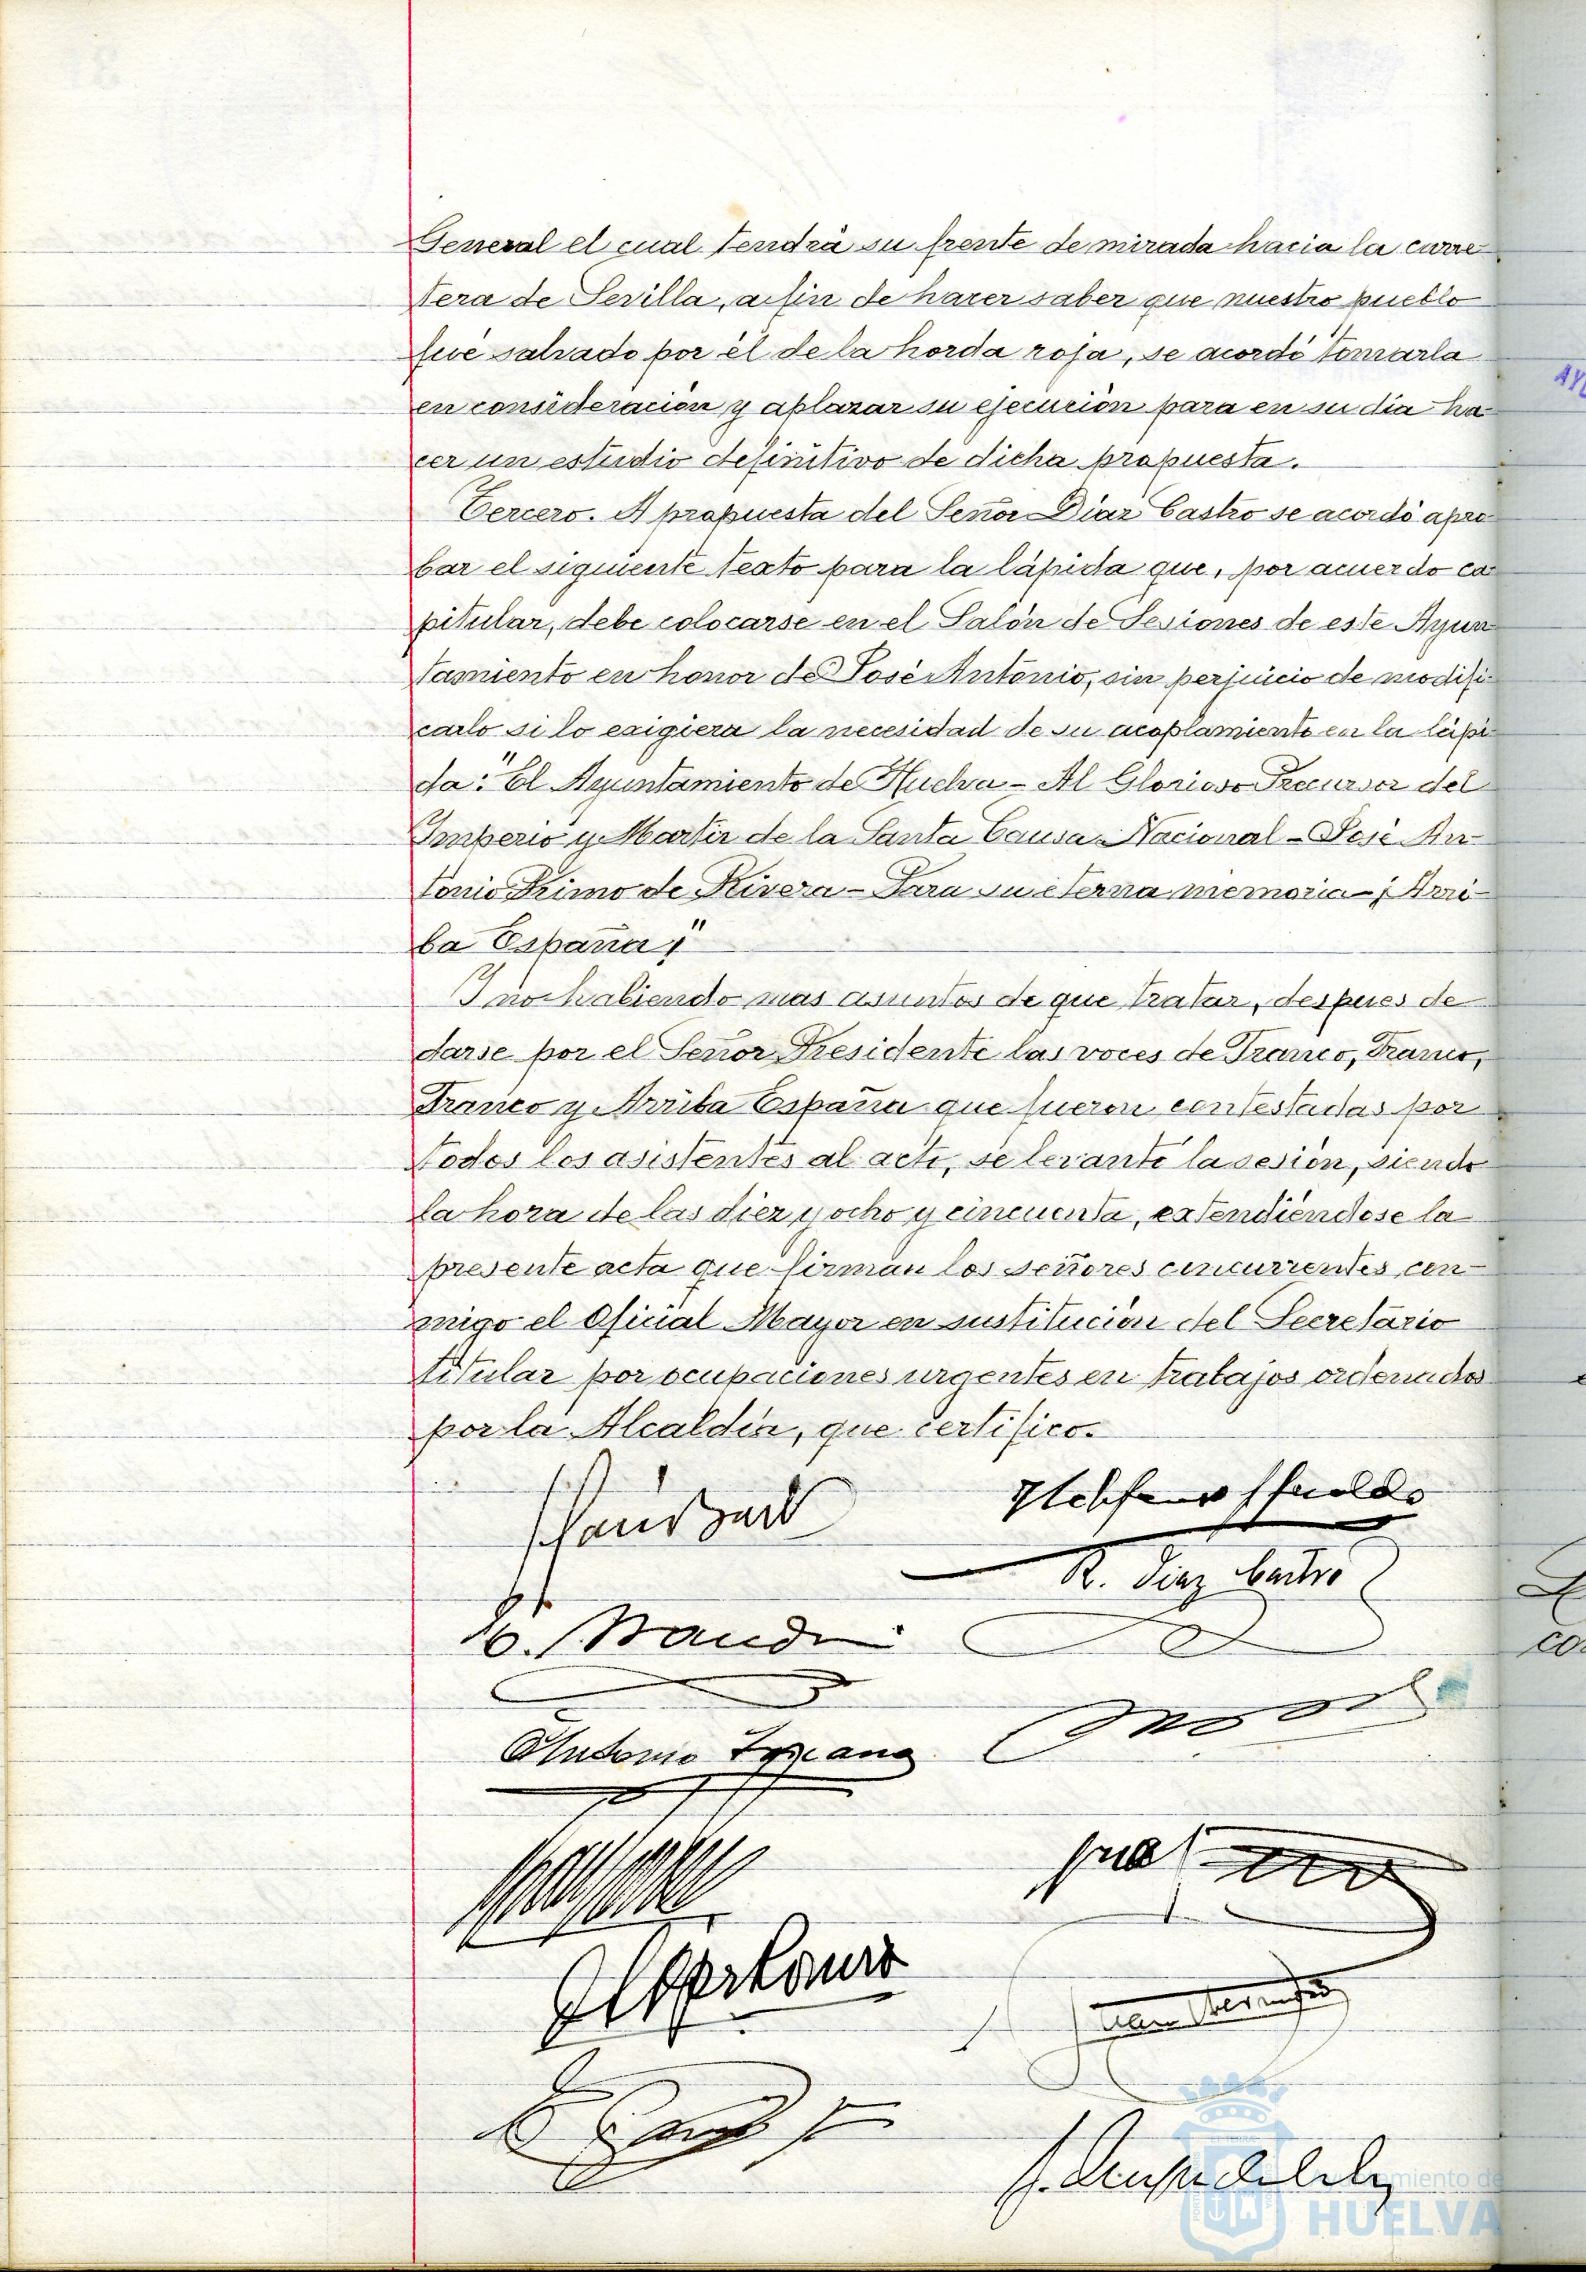 General el cual tendrá su frente de mirada hacia la carre-
tera de Sevilla, a fin de hacer saber que nuestro pueblo
fué salvado por él de la horda roja, se acordó tomarla
en consideración y aplazar su ejecución para en su día ha-
cer un estudio definitivo de dicha propuesta.
Tercero. A propuesta del Señor Díaz Castro se acordó apro-
bar el siguiente texto para la lápida que, por acuerdo ca-
pitular, debe colocarse en el Salón de Sesiones de este Ayun-
tamiento en honor de José Antonio, sin perjuicio de modifi-
carlo si lo exigiera la necesidad de su acoplamiento en la lápi-
da: "El Ayuntamiento de Huelva - Al Glorioso Precursor del
Imperio y Martir de la Santa Causa Nacional - José An-
tonio Primo de Rivera - Para su eterna memoria - ¡Arri-
ba España!"
Y no habiendo mas asuntos de que tratar, despues de
darse por el Señor Presidente las voces de Franco, Franco,
Franco y Arriba España que fueron contestadas por
todos los asistentes al acto, se levantó la sesión, siendo
la hora de las diez y ocho y cincuenta, extendiéndose la
presente acta que firman los señores concurrentes, con-
migo el Oficial Mayor en sustitución del Secretario
titular por ocupaciones urgentes en trabajos ordenados
por la Alcaldía, que certifico.
R. Diaz Castro
Antonio Toscano
Ayuntamiento de
HUELVA